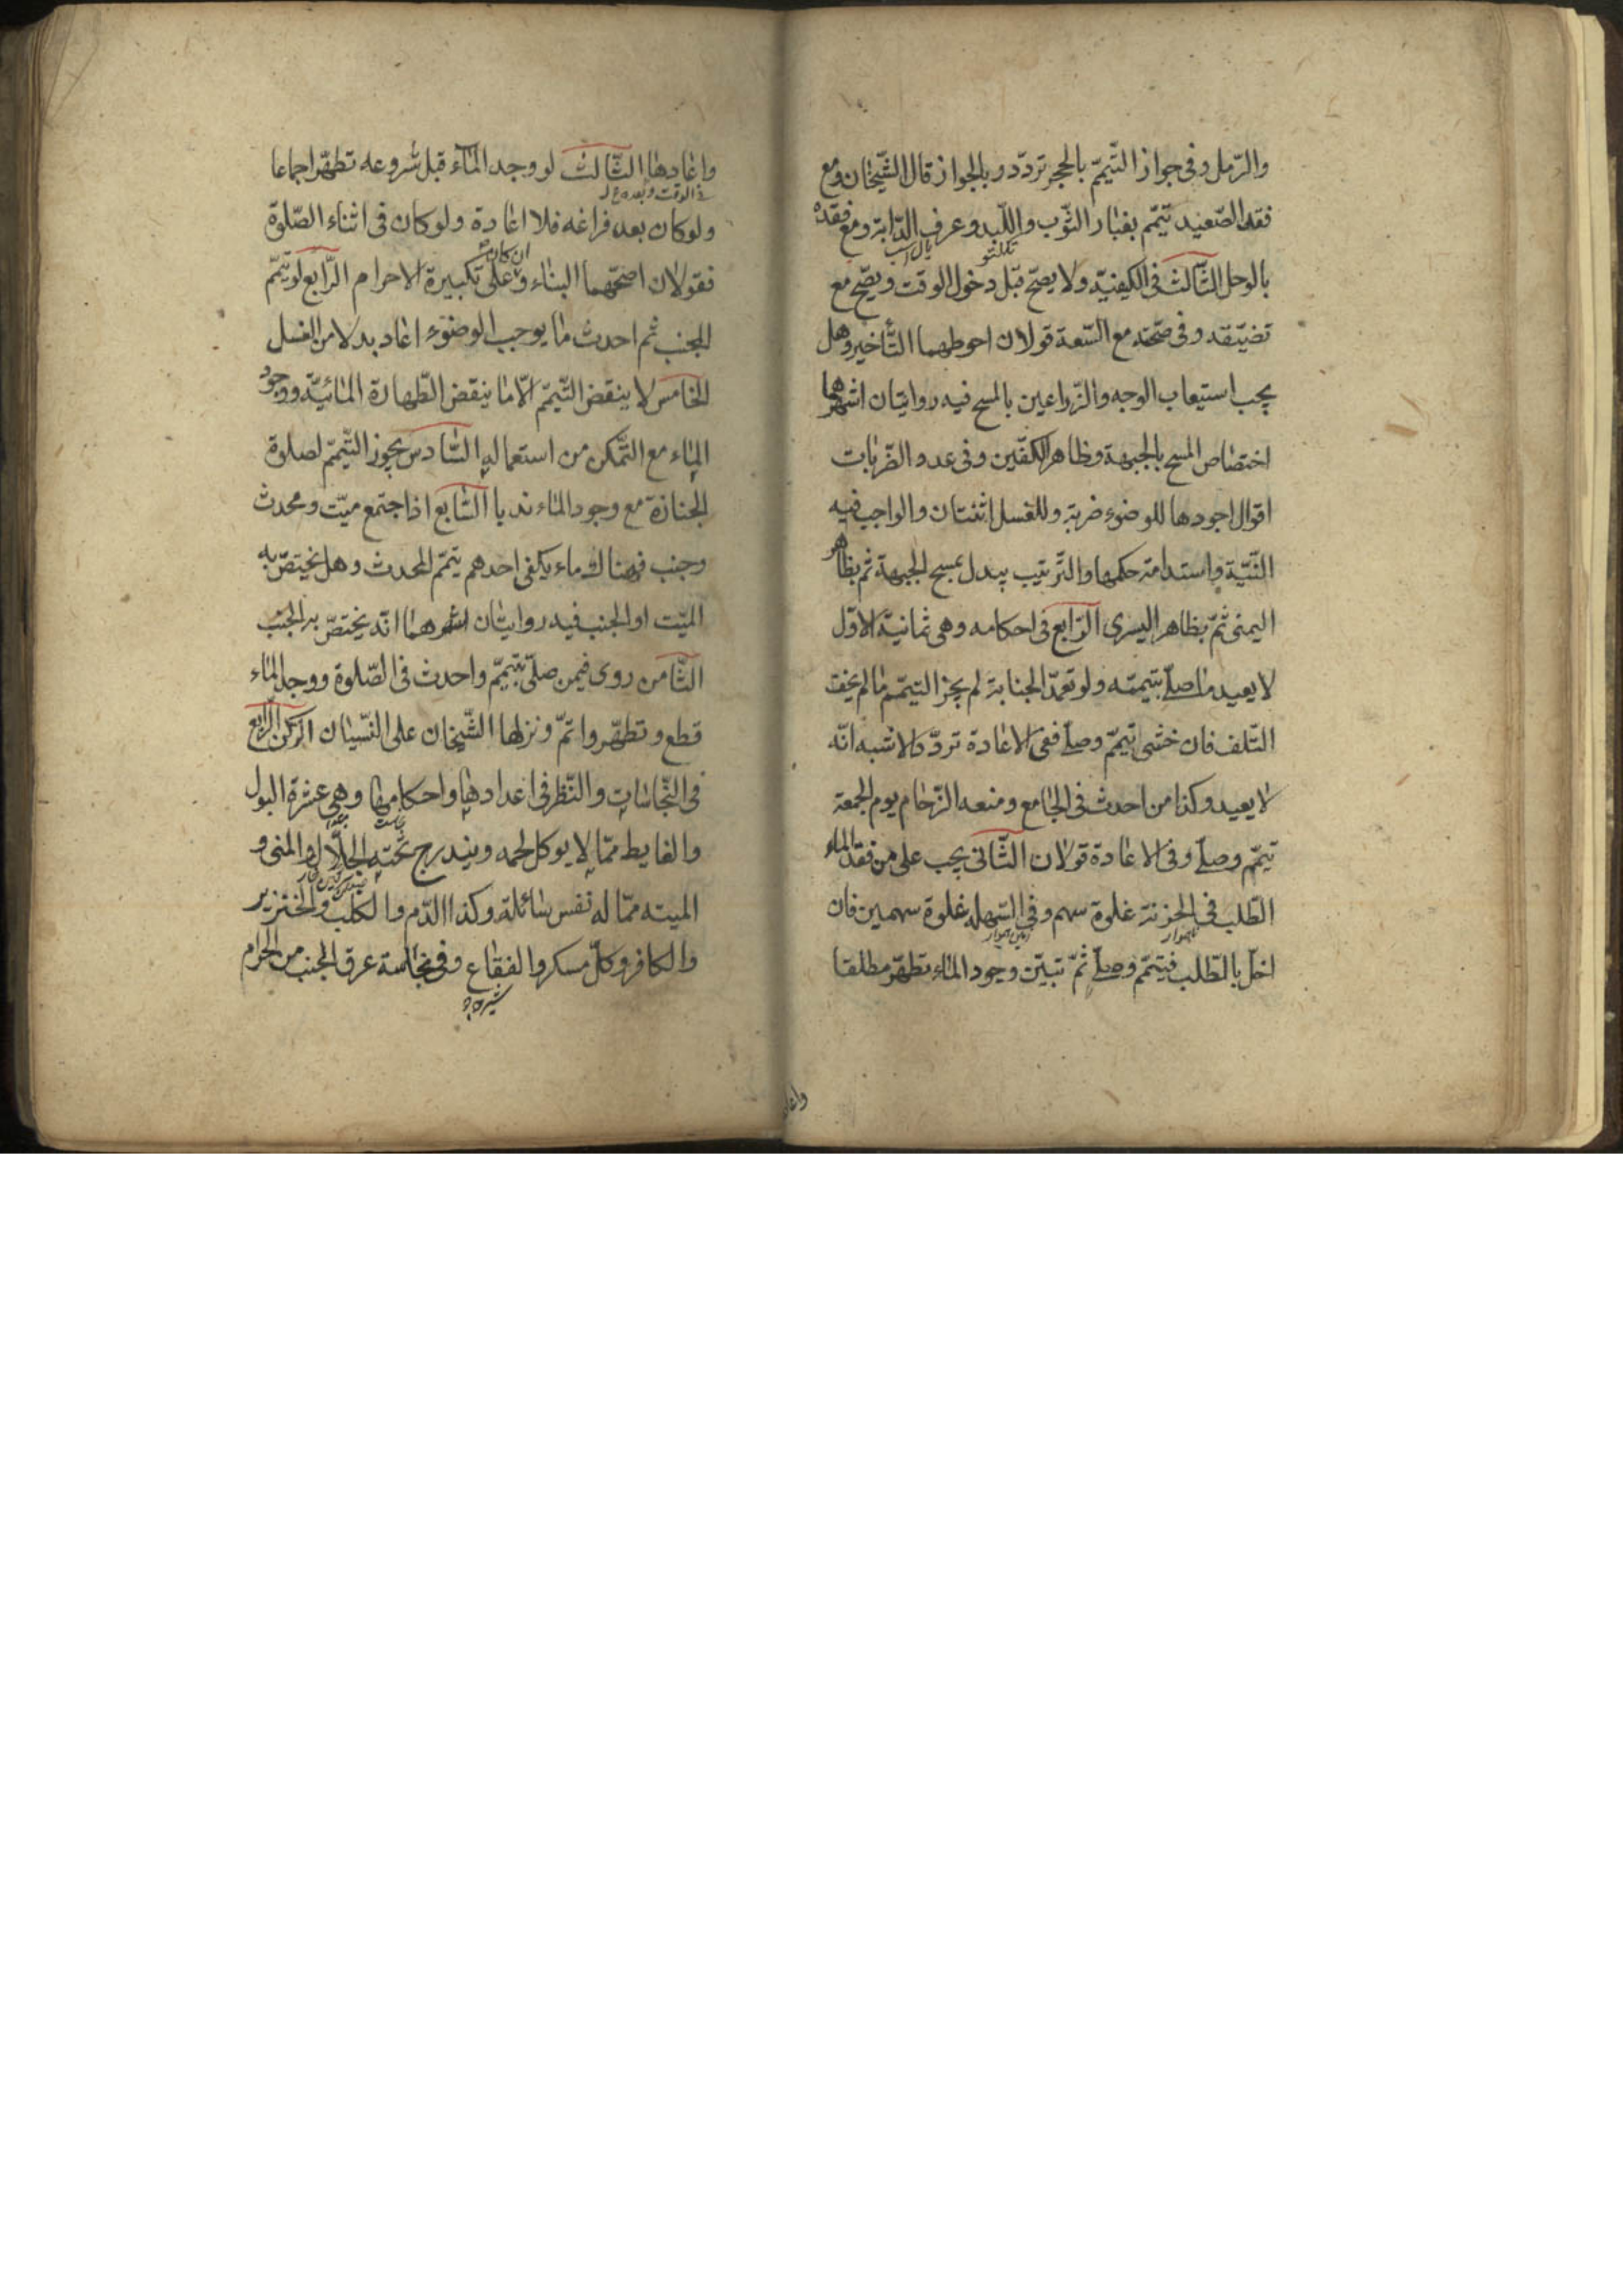 والرّمل وفى جواز التّيمّم بالحجر تردّد وبالجواز قال الشّيخان ومع
فقد الصّعيد تيمّم بغبار الثّوب واللّبد وعرف الدّابة ومع فقده
بالوحل الثّالث فى الكيفيّة ولا يصحّ قبل دخول الوقت ويصحّ مع
تضيّقه وفى صحّته مع السّعة قولان احوطهما التّأخير وهل
يجب استيعاب الوجه والزّراعين بالمسح فيه روايتان اشهرهما
اختصاص المسح بالجبهة وظاهر الكفّين وفى عدد الضّربات
اقوال اجودها للوضوء ضربة وللغسل اثنتان والواجب فيه
النّيّة واستدامة حكمها والتّرتيب يبدل بمسح الجبهة ثم بظاهر
اليمنى ثمّ بظاهر اليسرى الرّابع فى احكامه وهى ثمانية الاوّل
لا يعيد ما صلّى بتيممّه ولو تعمّد الجنابة لم يجز التيمّم ما لم يخف
التّلف فان خشى تيمّم وصلّى ففى الاعادة تردّد والاشبه انّه
لا يعيد وكذا من احدث فى الجامع ومنعه الزّحام يوم الجمعة
تيمّم وصلّى وفى الاعادة قولان الثّانى يجب على من فقد الماء
الطّلب فى الحزنة غلوة سهم وفى السّهلة غلوة سهمين فان
اخلّ بالطّلب فتيمّم وصلّى ثمّ تبيّن وجود الماء تطهّر مطلقا
واعاد
واعادها الثّالث لو وجد الماء قبل شروعه تطهّر اجماعا
فى الوقت وبعده
ولو كان بعد فراغه فلا اعادة ولو كان فى اثناء الصّلوة
فقولان اصحّهما البناء وعلى تكبيرة الاحرام الرّابع لو تيمّم
الجنب ثم احدث ما يوجب الوضوء اعاد بدلا من الغسل
الخامس لا ينقض التّيمّم الّا ما ينقض الطّهارة المائيّة ووجود
الماء مع التّمكن من استعماله السّادس يجوز التّيمّم لصلوة
الجنازة مع وجود الماء ندبا السّابع اذا اجتمع ميّت ومحدث
وجنب فهناك ماء يكفى احدهم يتمّم المحدث وهل يختصّ به
الميّت او الجنب فيه روايتان اشهرهما انّه يختصّ به الجنب
الثّامن روى فيمن صلّى بتيمّم واحدث فى الصّلوة ووجد الماء
قطع وتطهّر واتمّ ونزلها الشّيخان على النّسيان الركن الرابع
فى النّجاسات والنّظر فى اعدادها واحكامها وهى عشرة البول
والغايط ممّا لا يوكل لحمه ويندرج تحته الجلّال والمنى و
الميته ممّا له نفس سائلة وكذا الدّم والكلب والخنزير
والكافر وكلّ مسكر والفقاع وفى نجاسة عرق الجنب من الحرام